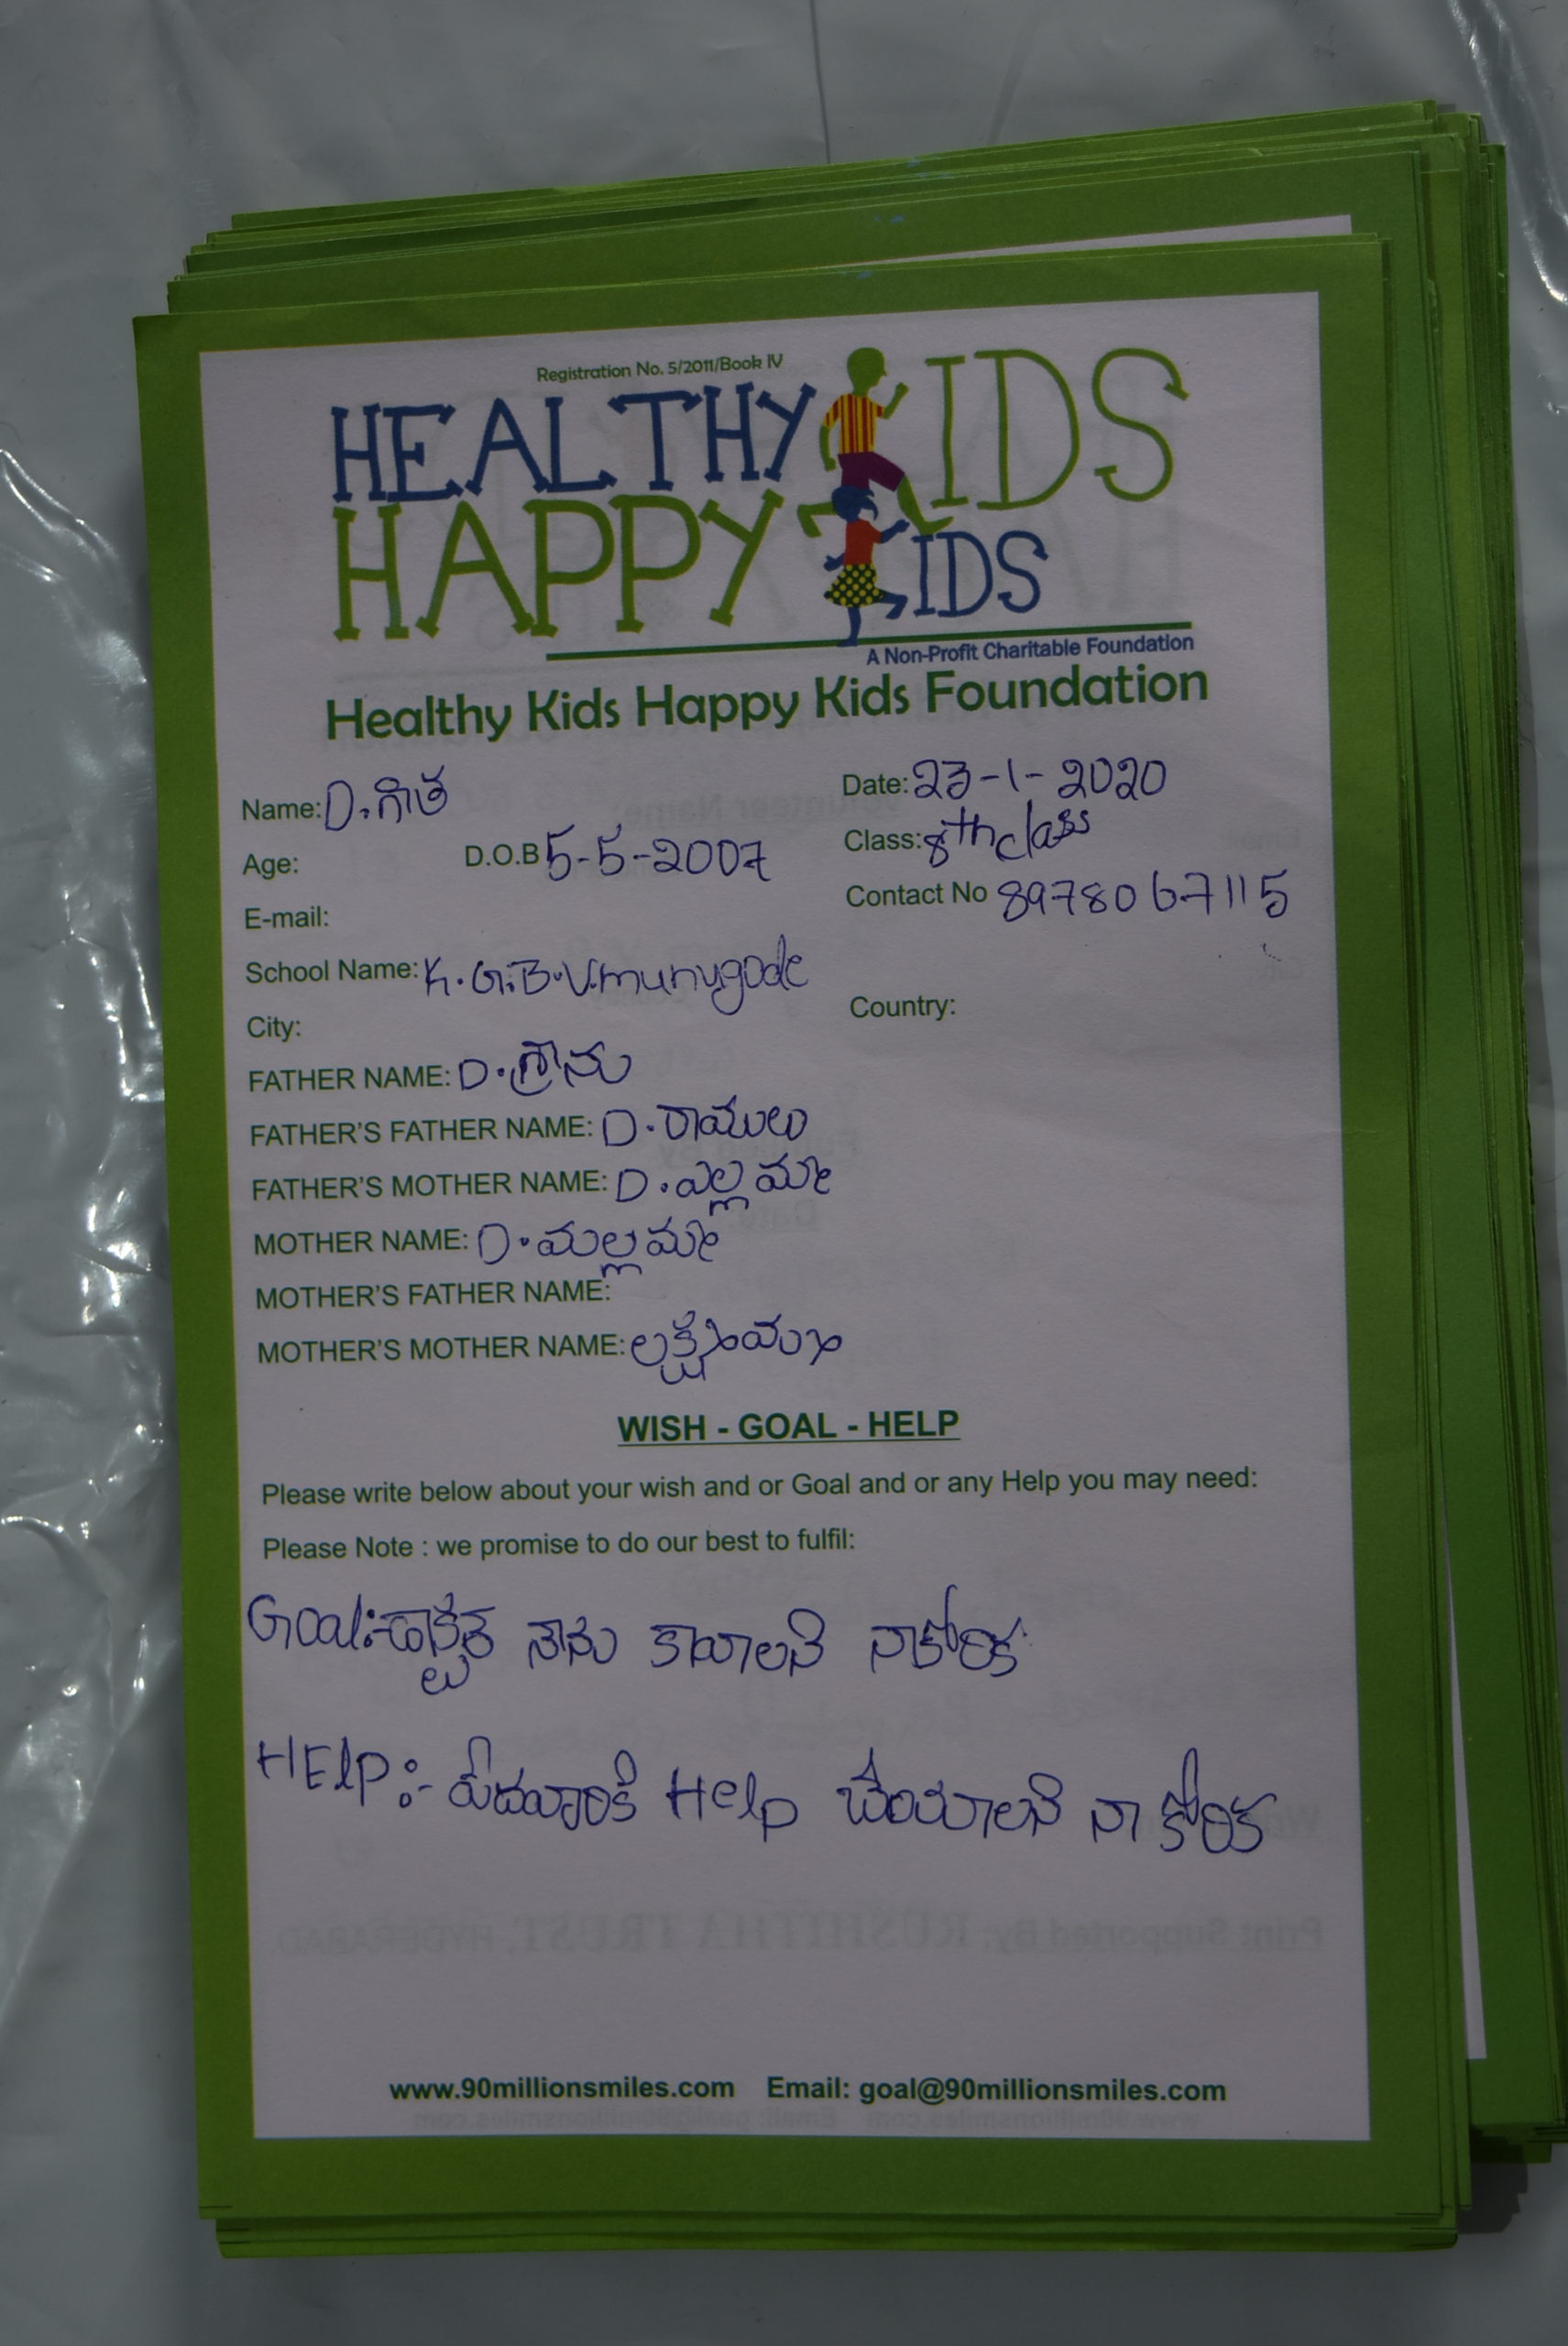 Registration No. 5/2011/Book IV
HEALTHY KIDS
HAPPY KIDS
A Non-Profit Charitable Foundation
Healthy Kids Happy Kids Foundation
Name: D. గీత Date: 23-1-2020
Age: D.O.B 5-5-2007 Class: 8th class
E-mail: Contact No 8978067115
School Name: K.G.B.V. munugode
City: Country:
FATHER NAME: D. శ్రీను
FATHER'S FATHER NAME: D. రాములు
FATHER'S MOTHER NAME: D. ఎల్లమ్మ
MOTHER NAME: D. మల్లమ్మ
MOTHER'S FATHER NAME:
MOTHER'S MOTHER NAME: లక్ష్మమ్మ
WISH - GOAL - HELP
Please write below about your wish and or Goal and or any Help you may need:
Please Note : we promise to do our best to fulfil:
Goal:- డాక్టర్ నేను కావాలనే నా కోరిక
HElp:- పేదవారికి Help చేయాలనే నా కోరిక
Print Supported By: RUSHITHA TRUST, HYDERABAD.
www.90millionsmiles.com Email: goal@90millionsmiles.com